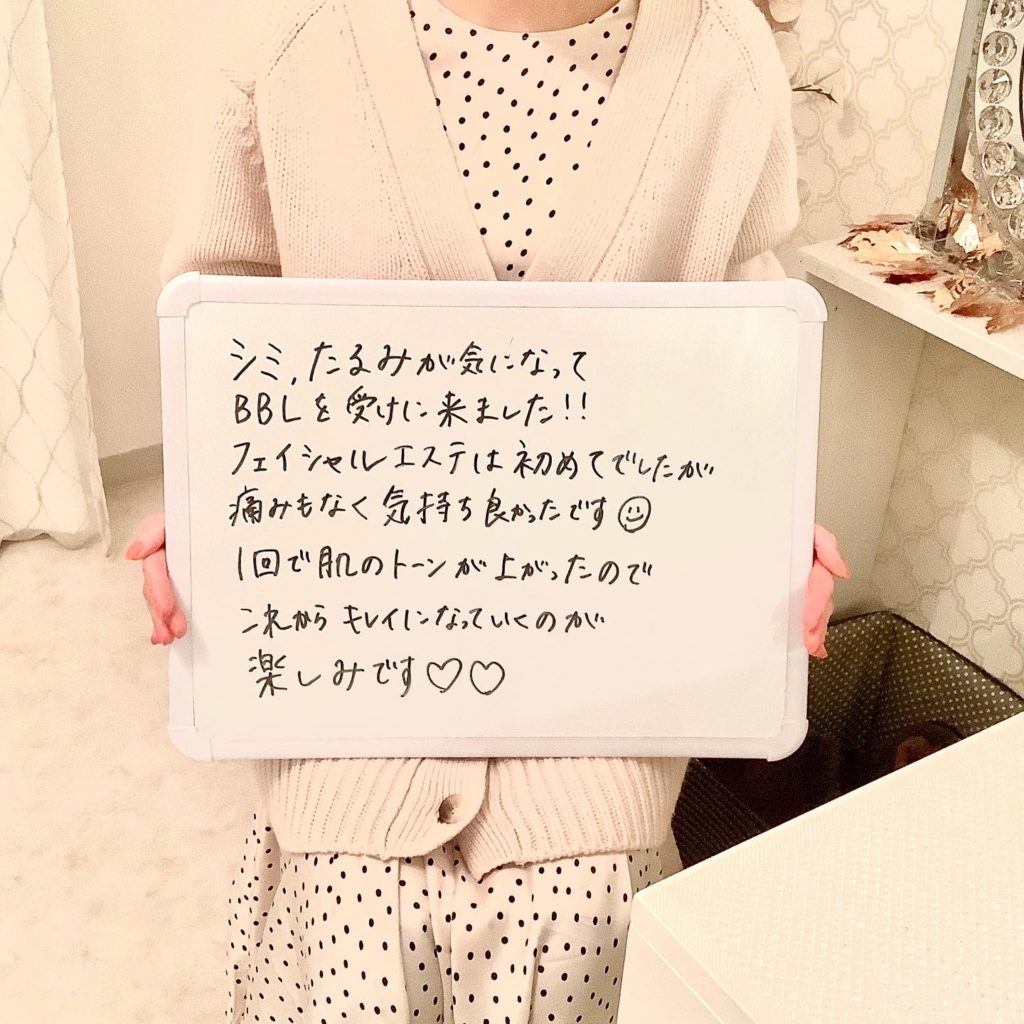 シミ,たるみが気になって
BBLを受けに来ました!!
フェイシャルエステは初めてでしたが
痛みもなく気持ち良かったです☺
1回で肌のトーンが上がったので
これからキレイになっていくのが
楽しみです♡♡